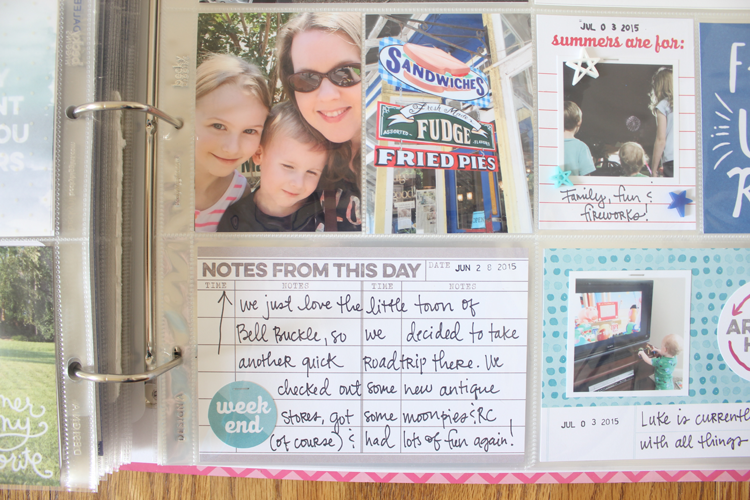 SANDWICHES
Fresh Made
ASSORTED FUDGE FLAVORS
FRIED PIES
JUL 0 3 2015
summers are for:
Family, fun &
fireworks!
NOTES FROM THIS DAY DATE JUN 2 8 2015
TIME NOTES TIME NOTES
we just love the little town of
Bell Buckle, so we decided to take
another quick roadtrip there. We
checked out some new antique
stores, got some moonpies & RC
(of course) & had lots of fun again!
week
end
JUL 0 3 2015
Luke is currently
with all things